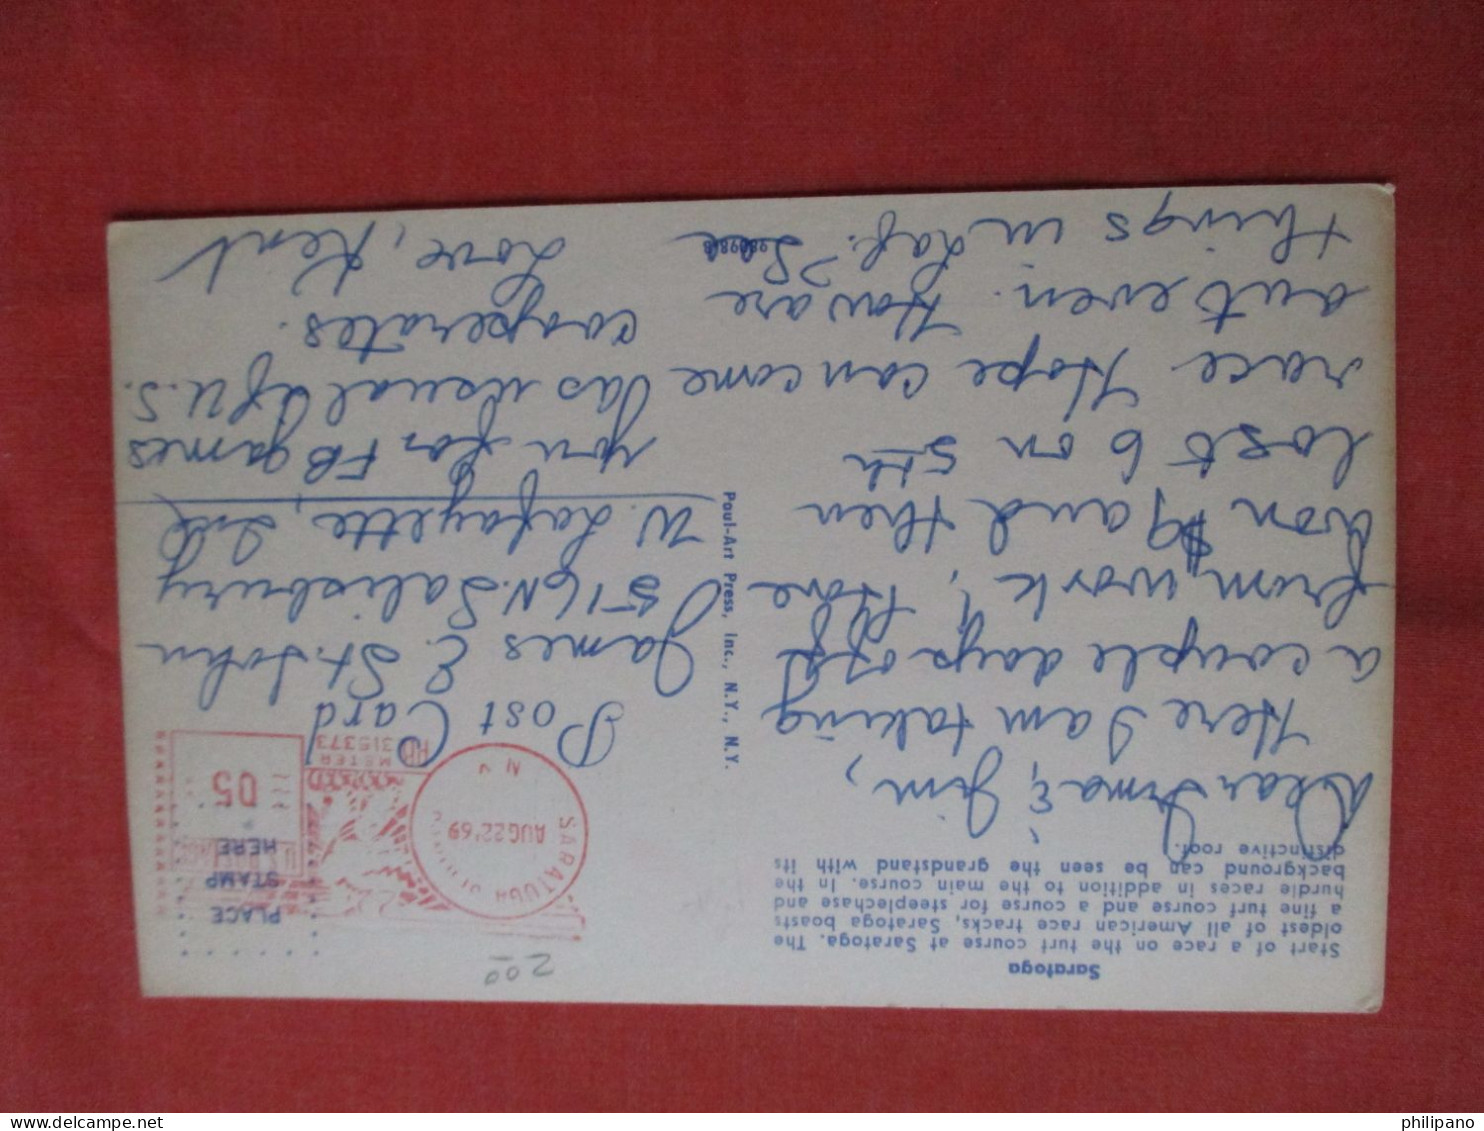 Saratoga
Start of a race on the turf course at Saratoga. The
oldest of all American race tracks, Saratoga boasts
a fine turf course and a course for steeplechase and
hurdle races in addition to the main course. In the
background can be seen the grandstand with its
distinctive roof.
Dear Irma & Jim,
Here I am taking
a couple days off
from work. Have
won $9 and then
lost 6 on 5th
race Hope can come
out even. How are
things in Laf.? See
you for FB games
as usual if U.S.
cooperates.
Love, Kent
98098
Poul-Art Press, Inc., N.Y., N.Y.
200
PLACE
STAMP
HERE
SARATOGA
AUG22'69
N Y
U.S. POSTAGE
05
PB
METER
315373
Post Card
James E. St. John
516 N. Salisbury
W. Lafayette, Ind
philipano